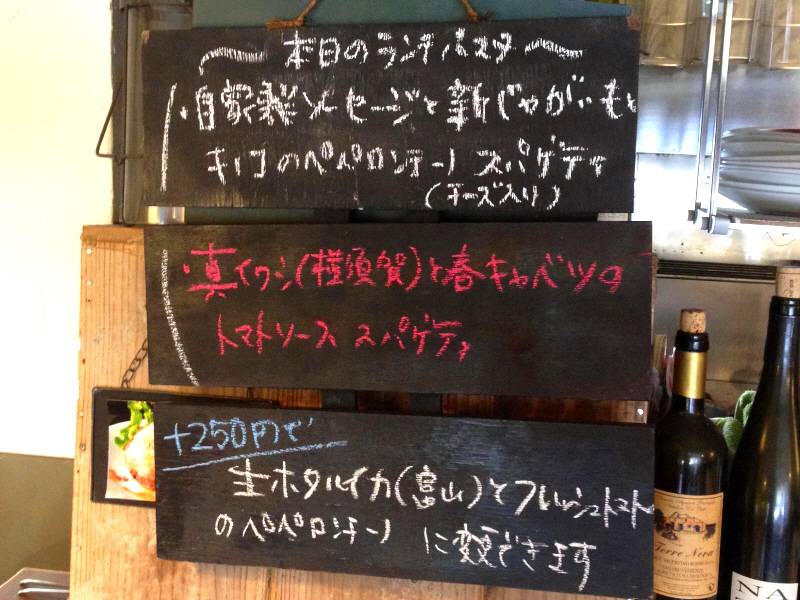 本日のランチパスタ
・自家製ソーセージと新じゃがいもと
キノコのペペロンチーノ スパゲティ
(チーズ入り)
・真イワシ(横須賀)と春キャベツの
トマトソース スパゲティ
+250円で
生ホタルイカ(富山)とフレッシュトマト
のペペロンチーノ に変更できます
Terre Nova
NA